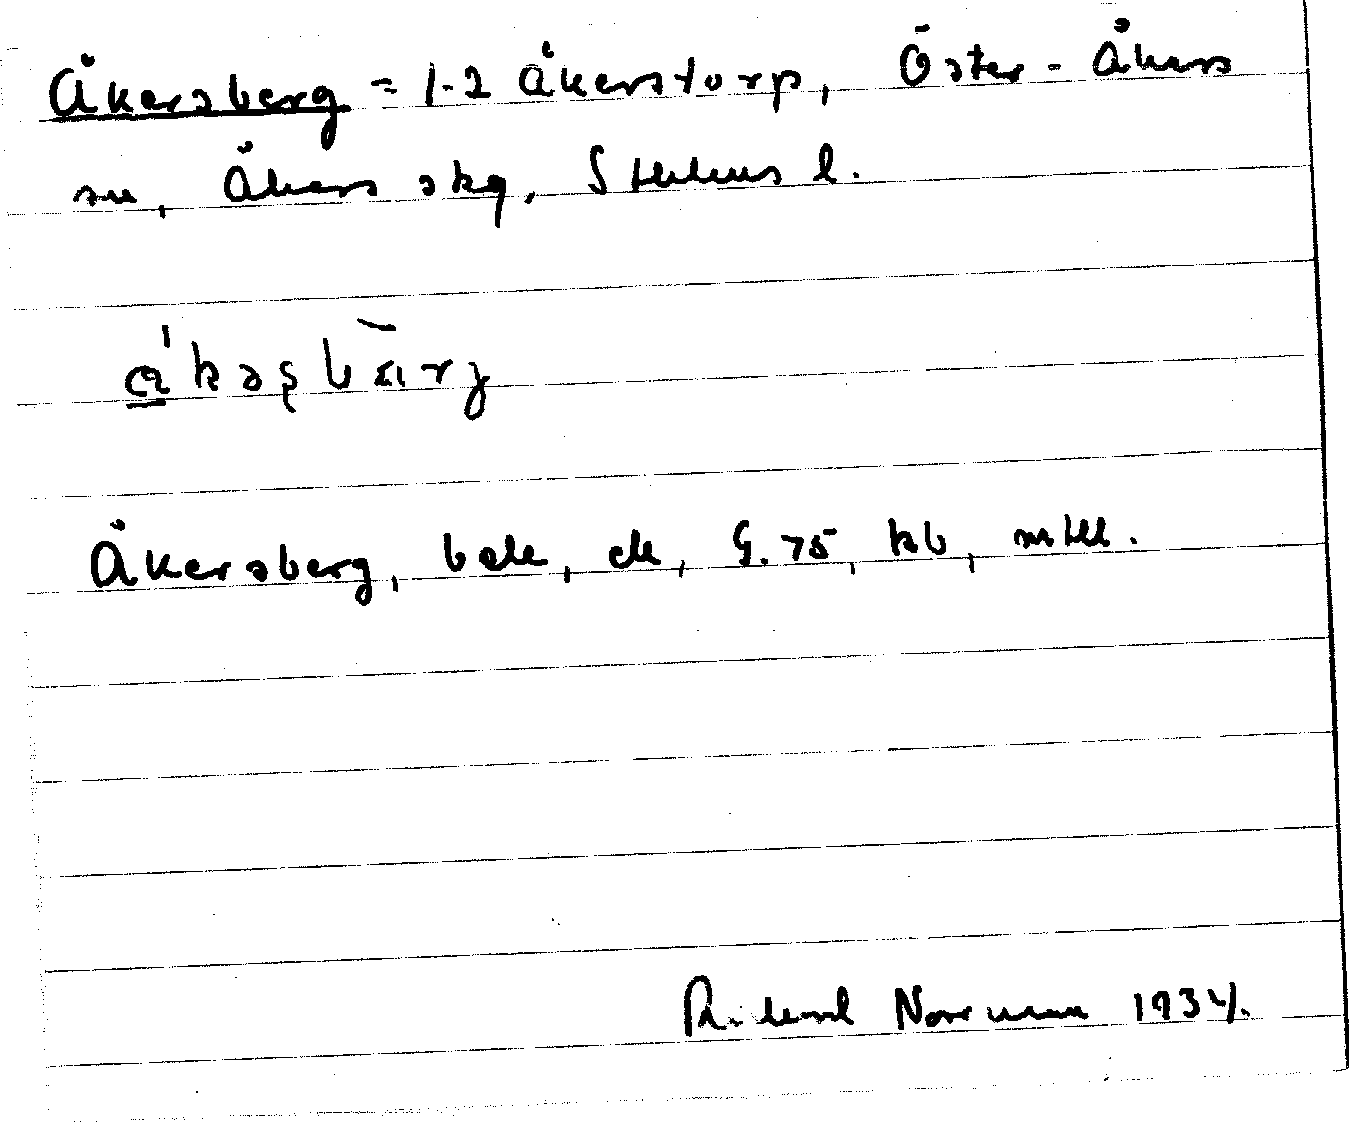 Åkersberg = 1-2 Åkerstorp, Öster-Åkers
sn, Åkers skg, Sthlms l.
Åkersberg, bok, ek, G. 75, kb, mtll.
Rikard Norrman 1934.